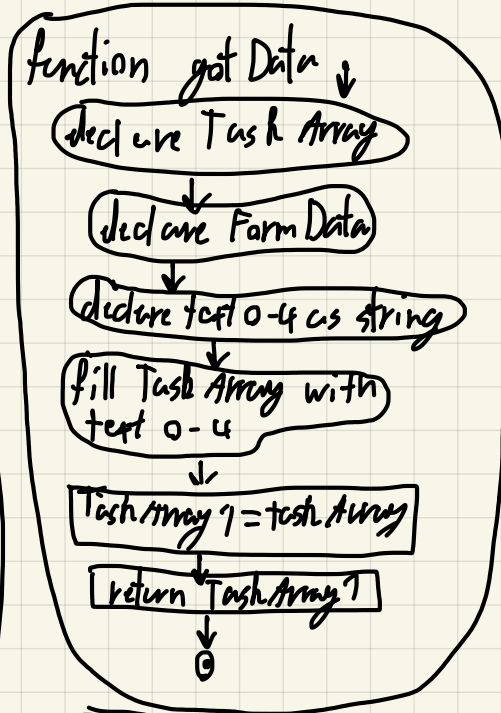 function got Data
declare Tash Array
declare Form Data
declare text 0-4 as string
fill Task Array with
text 0-4
TashArray1=tashArray
return TashArray1